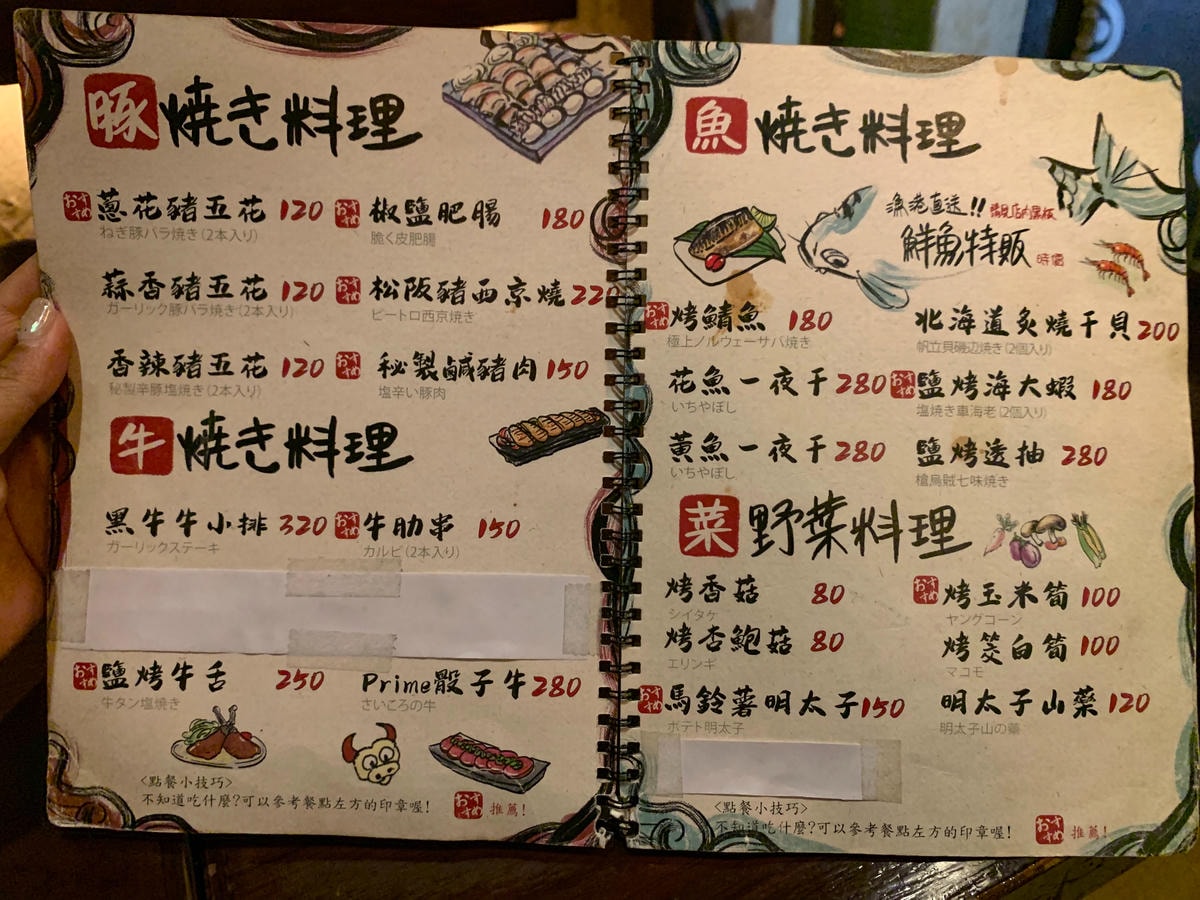 豚焼き料理
おすすめ 蔥花豬五花 120
ねぎ豚バラ焼き(2本入り)
おすすめ 椒鹽肥腸 180
脆く皮肥腸
蒜香豬五花 120
ガーリック豚バラ焼き(2本入り)
おすすめ 松阪豬西京燒 220
ピートロ西京焼き
香辣豬五花 120
秘製辛豚塩焼き(2本入り)
おすすめ 秘製鹹豬肉 150
塩辛い豚肉
牛焼き料理
黑牛牛小排 320
ガーリックステーキ
おすすめ 牛肋串 150
カルビ(2本入り)
おすすめ 鹽烤牛舌 250
牛タン塩焼き
Prime骰子牛 280
さいころの牛
<點餐小技巧>
不知道吃什麼?可以參考餐點左方的印章喔!
おすすめ 推薦!
魚焼き料理
漁港直送!!
鮮魚特販 時價
おすすめ 烤鯖魚 180
極上ノルウェーサバ焼き
北海道炙燒干貝 200
帆立貝磯辺焼き(2個入り)
花魚一夜干 280
いちやぼし
おすすめ 鹽烤海大蝦 180
塩焼き車海老(2個入り)
黃魚一夜干 280
いちやぼし
鹽烤透抽 280
槍烏賊七味焼き
菜野菜料理
烤香菇 80
シイタケ
おすすめ 烤玉米筍 100
ヤングコーン
烤杏鮑菇 80
エリンギ
烤筊白筍 100
マコモ
おすすめ 馬鈴薯明太子 150
ポテト明太子
明太子山藥 120
明太子山の薬
<點餐小技巧>
不知道吃什麼?可以參考餐點左方的印章喔!
おすすめ 推薦!